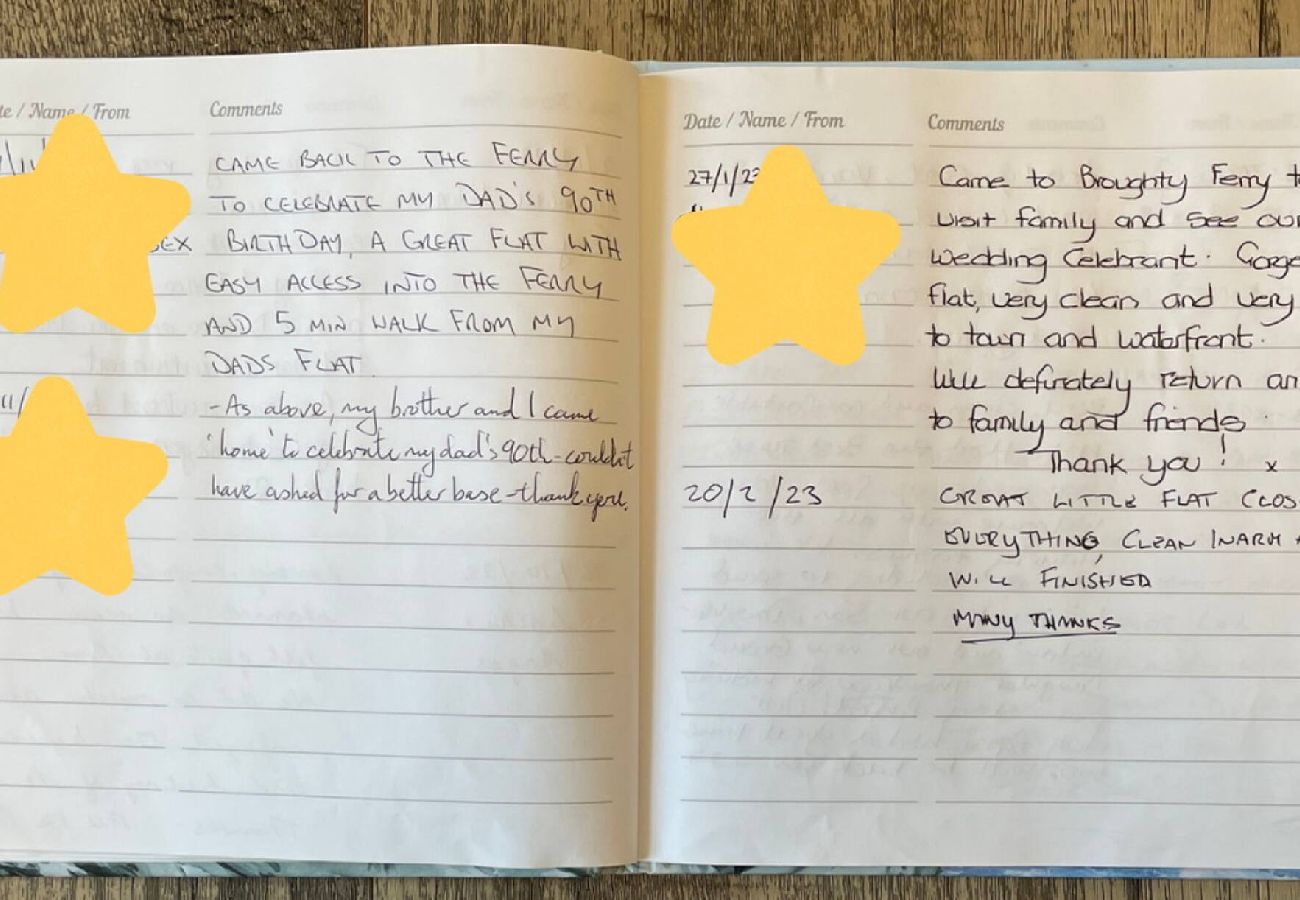 te / Name / From
Comments
CAME BACK TO THE FERRY
TO CELEBRATE MY DAD'S 90TH
BIRTHDAY, A GREAT FLAT WITH
EASY ACCESS INTO THE FERRY
AND 5 MIN WALK FROM MY
DADS FLAT.
-As above, my brother and I came
'home' to celebrate my dad's 90th-couldn't
have asked for a better base-thank you.
Date / Name / From
Comments
27/1/23
Came to Broughty Ferry to
visit family and see our
wedding Celebrant. Gorge
flat, very clean and very
to town and waterfront.
Will definately return an
to family and friends.
Thank you! x
20/2/23
GREAT LITTLE FLAT CLOS
EVERYTHING, CLEAN WARM +
WILL FINISHED
MANY THANKS